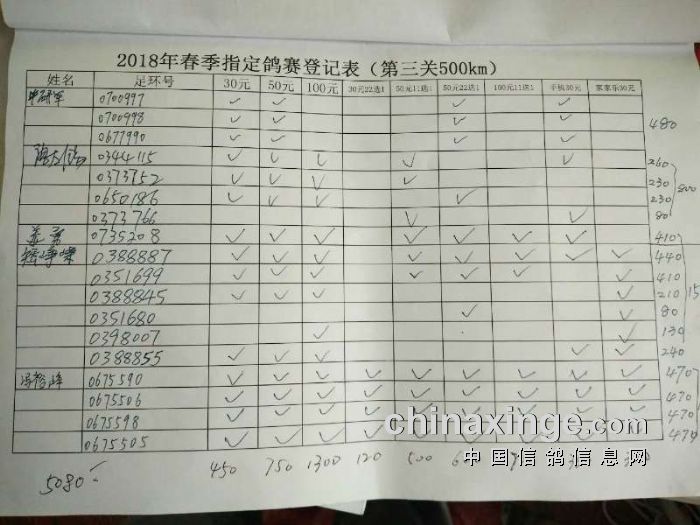 2018年春季指定鸽赛登记表（第三关500km）
姓名 足环号 30元 50元 100元 30元22选1 50元11选1 50元22选1 100元11选1 手机30元 家家乐30元
0700997 ✓ ✓ ✓ ✓
0700998 ✓ ✓ ✓ ✓
0677990 ✓ ✓ ✓ ✓ 480
0344115 ✓ ✓ ✓ ✓ ✓ 260
0373752 ✓ ✓ ✓ ✓ 230
0650186 ✓ ✓ ✓ ✓ 230 800
0373766 ✓ ✓ 80
0735208 ✓ ✓ ✓ ✓ ✓ ✓ ✓ 410
0388887 ✓ ✓ ✓ ✓ ✓ ✓ ✓ ✓ 440
0351699 ✓ ✓ ✓ ✓ ✓ ✓ ✓ 410
0388845 ✓ ✓ ✓ ✓ 210 15
0351680 ✓ ✓ 80
0398007 ✓ ✓ 130
0388855 ✓ ✓ ✓ ✓ ✓ 240
0675590 ✓ ✓ ✓ ✓ ✓ ✓ ✓ ✓ ✓ 470
0675506 ✓ ✓ ✓ ✓ ✓ ✓ ✓ ✓ ✓ 470
0675598 ✓ ✓ ✓ ✓ ✓ ✓ ✓ ✓ ✓ 470
0675505 ✓ ✓ ✓ ✓ ✓ ✓ ✓ ✓ ✓ 470
5080 450 750 1300 120 500
chinaxinge.com
中国信鸽信息网